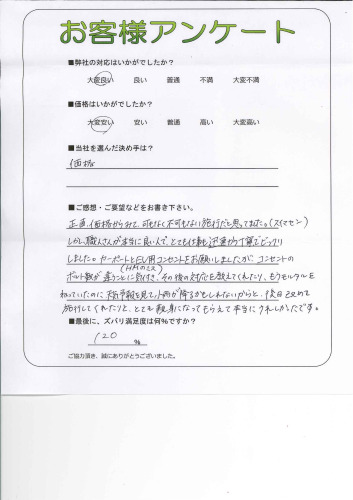 お客様アンケート
■弊社の対応はいかがでしたか?
大変良い 良い 普通 不満 大変不満
■価格はいかがでしたか?
大変安い 安い 普通 高い 大変高い
■当社を選んだ決め手は?
価格
■ご感想・ご要望などをお書き下さい。
正直、価格からみて、可もなく不可もない施行だと思ってました。(スミマセン)
しかし、職人さんが本当に良い人で、とても仕事も迅速かつ丁寧でビックリ
しました。カーポートとEV用コンセントをお願いしましたが、コンセントの
ボルト数が違うことに気付き、その後の対応を教えてくれたり、もうモルタルを
(HMのミス)
ねっていたのに天気予報を見て、雨が降るかもしれないからと、後日改めて
施行してくれたりと、とても親身になってもらえて本当にうれしかったです。
■最後に、ズバリ満足度は何%ですか?
120 %
ご協力頂き、誠にありがとうございました。